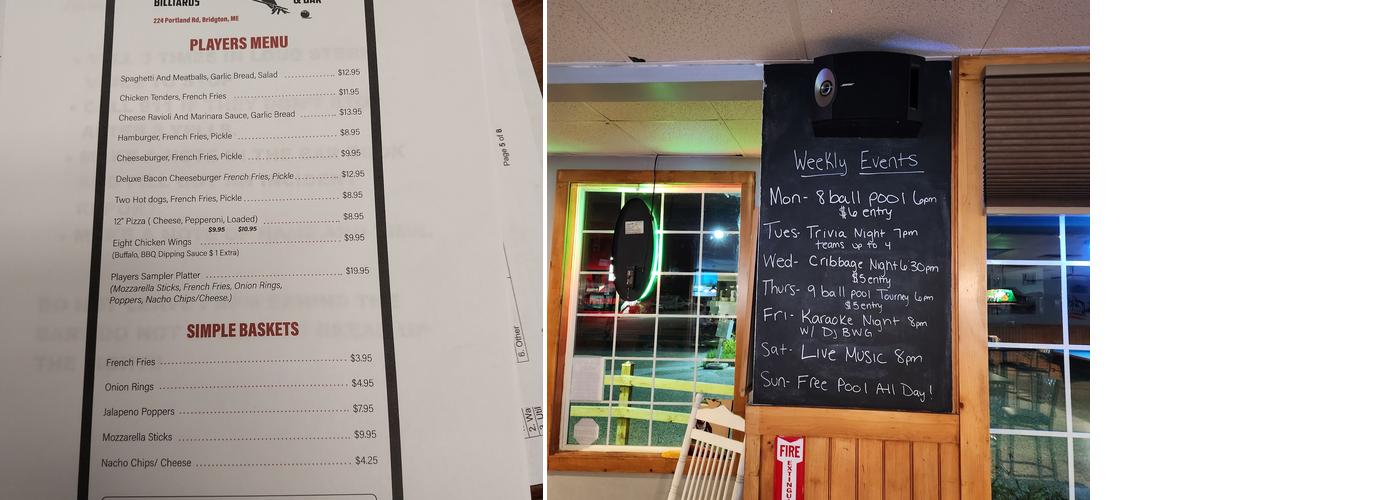 BILLIARDS & BAR
224 Portland Rd, Bridgton, ME
PLAYERS MENU
Spaghetti And Meatballs, Garlic Bread, Salad .............. $12.95
Chicken Tenders, French Fries .............. $11.95
Cheese Ravioli And Marinara Sauce, Garlic Bread .......... $13.95
Hamburger, French Fries, Pickle .............. $8.95
Cheeseburger, French Fries, Pickle .............. $9.95
Deluxe Bacon Cheeseburger French Fries, Pickle .............. $12.95
Two Hot dogs, French Fries, Pickle .............. $8.95
12" Pizza ( Cheese, Pepperoni, Loaded) .............. $8.95
$9.95 $10.95
Eight Chicken Wings .............. $9.95
(Buffalo, BBQ Dipping Sauce $ 1 Extra)
Players Sampler Platter .............. $19.95
(Mozzarella Sticks, French Fries, Onion Rings,
Poppers, Nacho Chips/Cheese.)
SIMPLE BASKETS
French Fries .............. $3.95
Onion Rings .............. $4.95
Jalapeno Poppers .............. $7.95
Mozzarella Sticks .............. $9.95
Nacho Chips/ Cheese .............. $4.25
Page 5 of 8
6. Other
Weekly Events
Mon- 8 ball pool 6pm
$6 entry
Tues- Trivia Night 7pm
teams up to 4
Wed- Cribbage Night 6:30pm
$5 entry
Thurs- 9 ball pool Tourney 6pm
$5 entry
Fri- Karaoke Night 8pm
w/ Dj BWG
Sat- Live Music 8pm
Sun- Free Pool All Day!
FIRE
EXTINGU